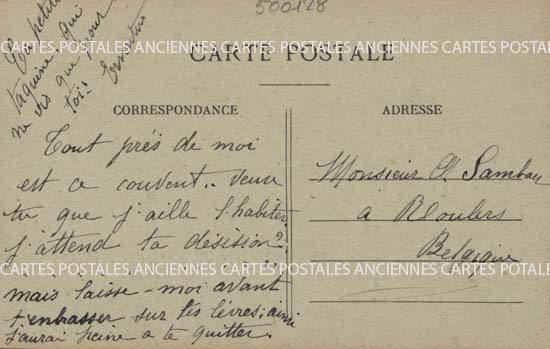 500128
Ta petite
taquine qui
ne vis que pour
toi.
CARTES POSTALES ANCIENNES CARTES POSTALES ANCIENNES CARTES POSTALES
CARTE POSTALE
CORRESPONDANCE
Tout prés de moi
est ce couvent.. veux
tu que j'aille l'habiter
j'attend ta désision?
mais laisse-moi avant
t'enbrasser sur tes lévres; ainsi
j'aurai peine a te quitter.
ADRESSE
Monsieur
a Roulers
Belgique
CARTES POSTALES ANCIENNES CARTES POSTALES ANCIENNES CARTES POSTALES